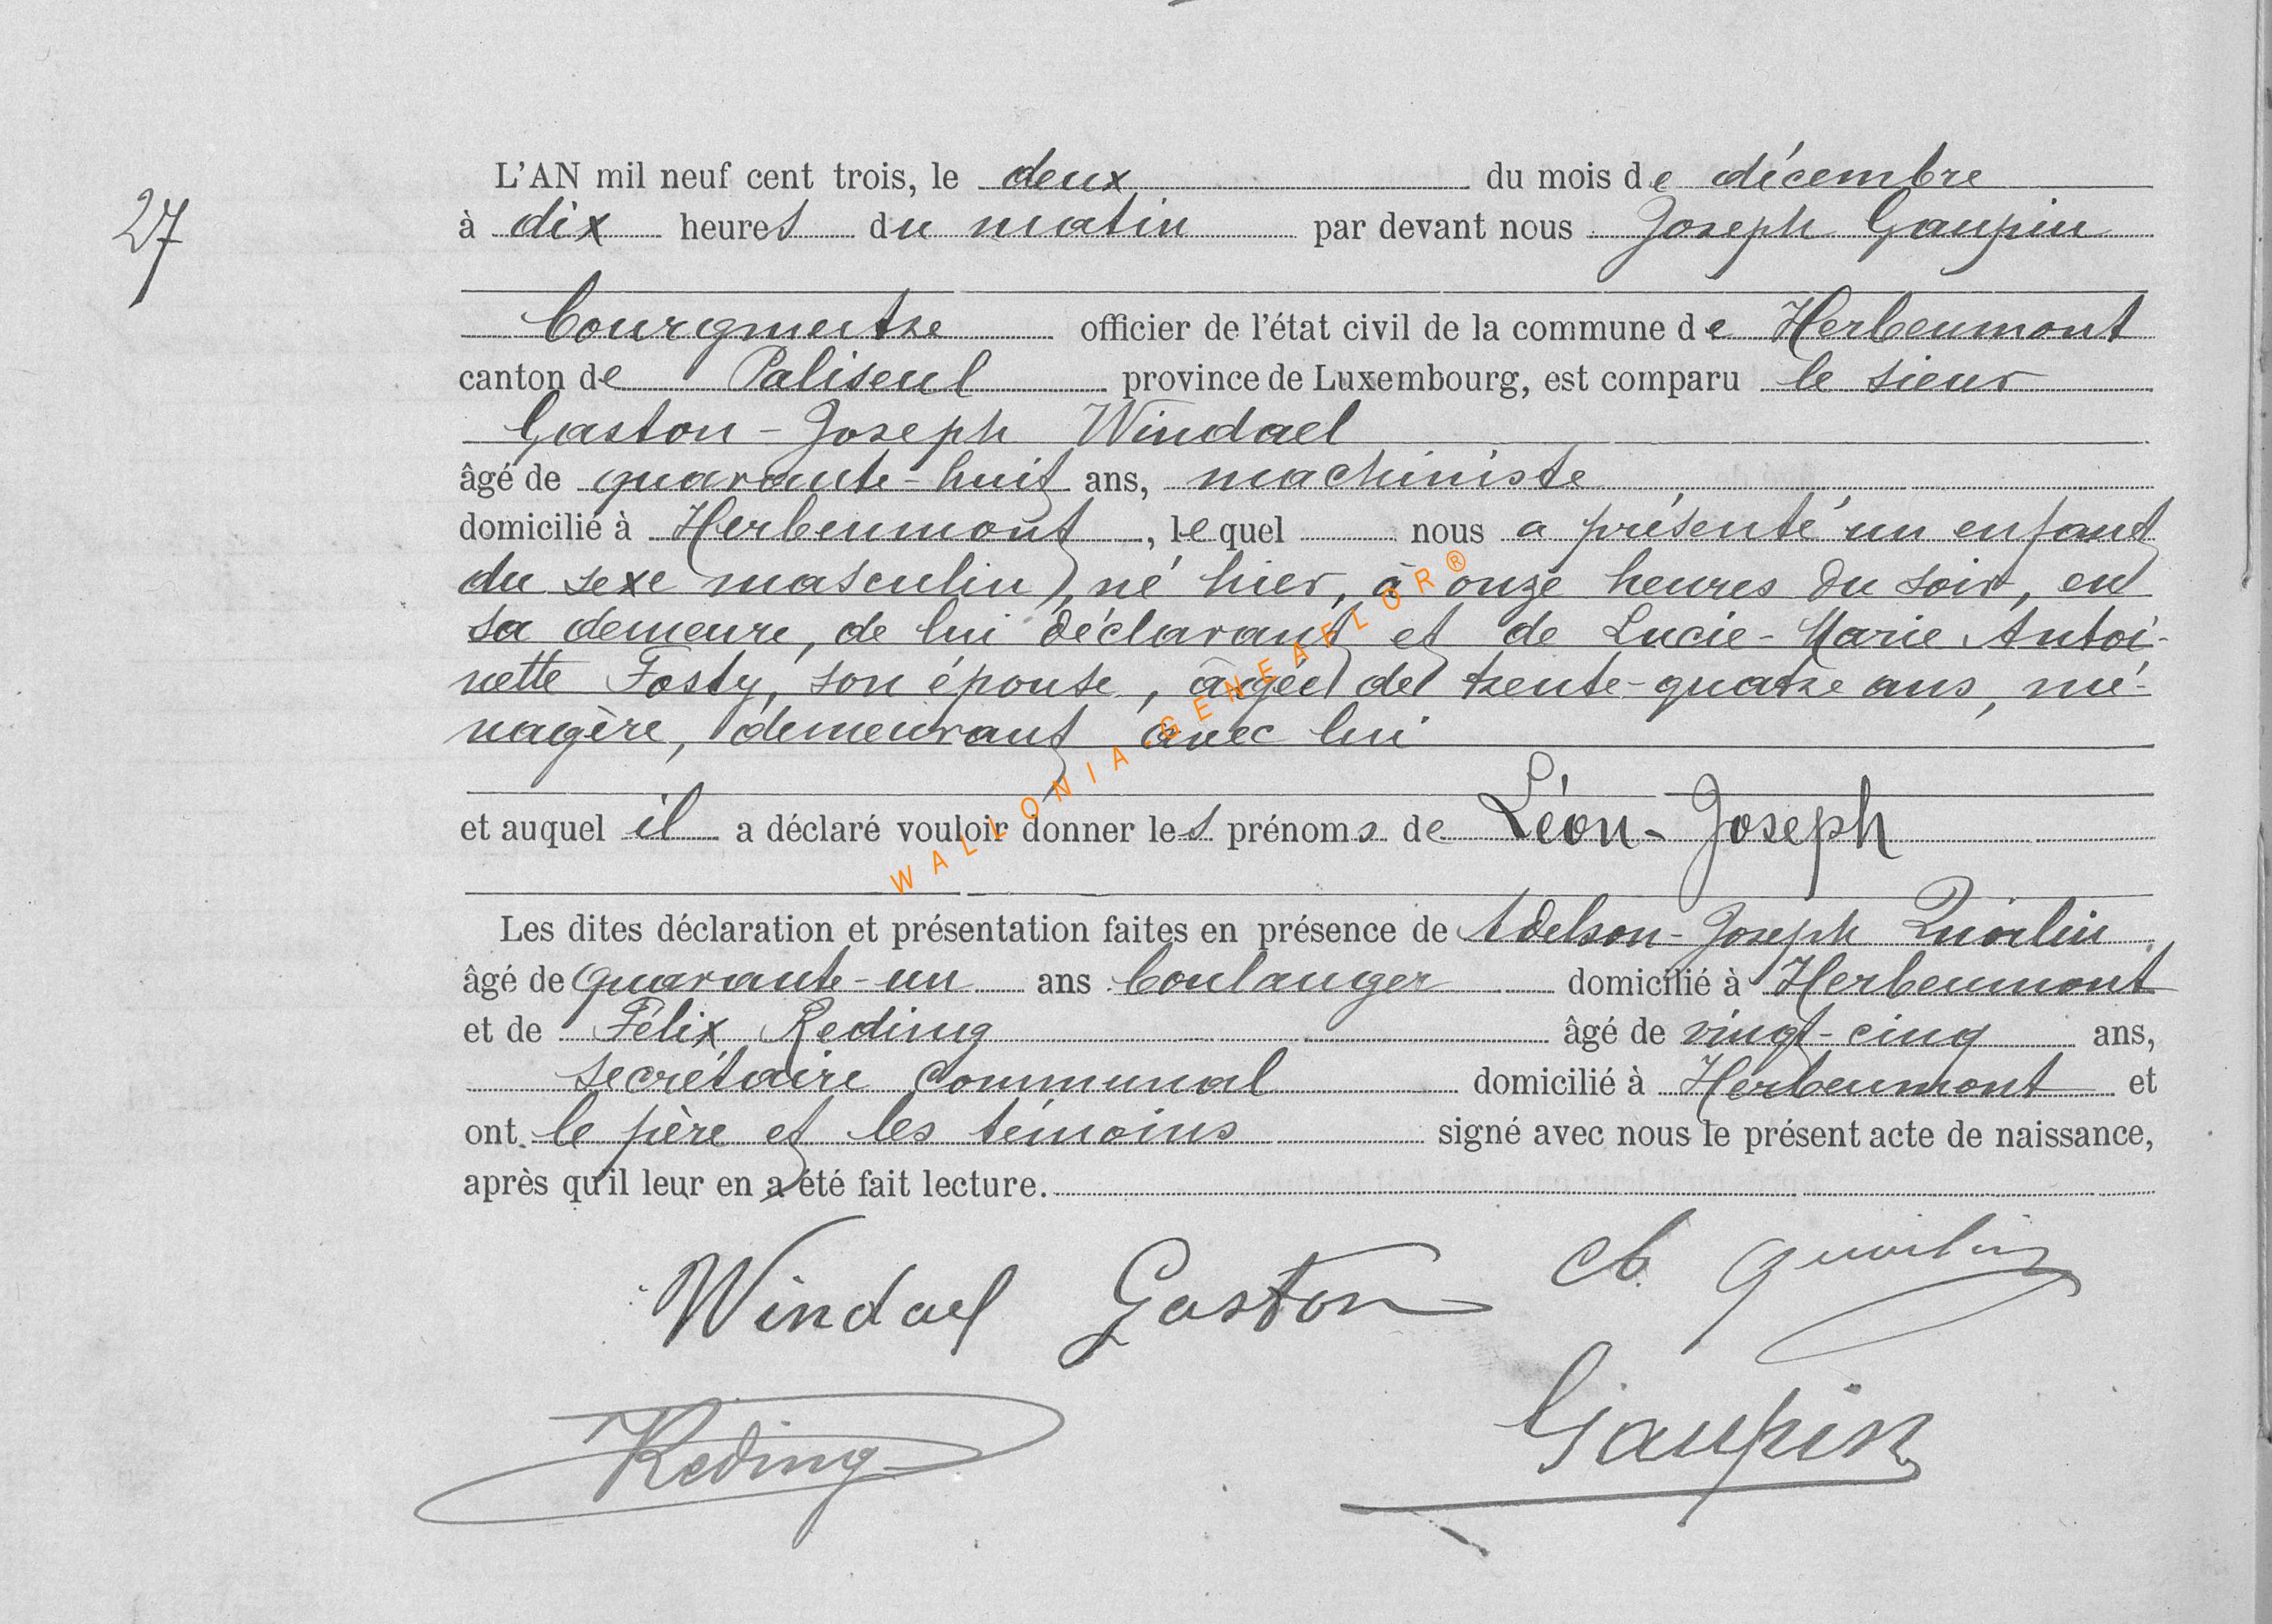 27
L'AN mil neuf cent trois, le deux du mois de décembre
à dix heures du matin par devant nous Joseph Gaupin
bourgmestre officier de l'état civil de la commune de Herbeumont
canton de Paliseul province de Luxembourg, est comparu le sieur
Gaston-Joseph Windael
âgé de quarante-huit ans, machiniste
domicilié à Herbeumont, lequel nous a présenté un enfant
du sexe masculin, né hier, à onze heures du soir, en
sa demeure, de lui déclarant et de Lucie-Marie Antoi-
nette Fosty, son épouse, âgée de trente-quatre ans, mé-
nagère, demeurant avec lui
et auquel il a déclaré vouloir donner les prénoms de Léon-Joseph
Les dites déclaration et présentation faites en présence de Adelson-Joseph Quoilin
âgé de quarante-un ans boulanger domicilié à Herbeumont
et de Félix Reding âgé de vingt-cinq ans,
secrétaire communal domicilié à Herbeumont et
ont le père et les témoins signé avec nous le présent acte de naissance,
après qu'il leur en a été fait lecture.
Windael Gaston Quoilin
Reding Gaupin
WALLONIA-GENEAFLOR®